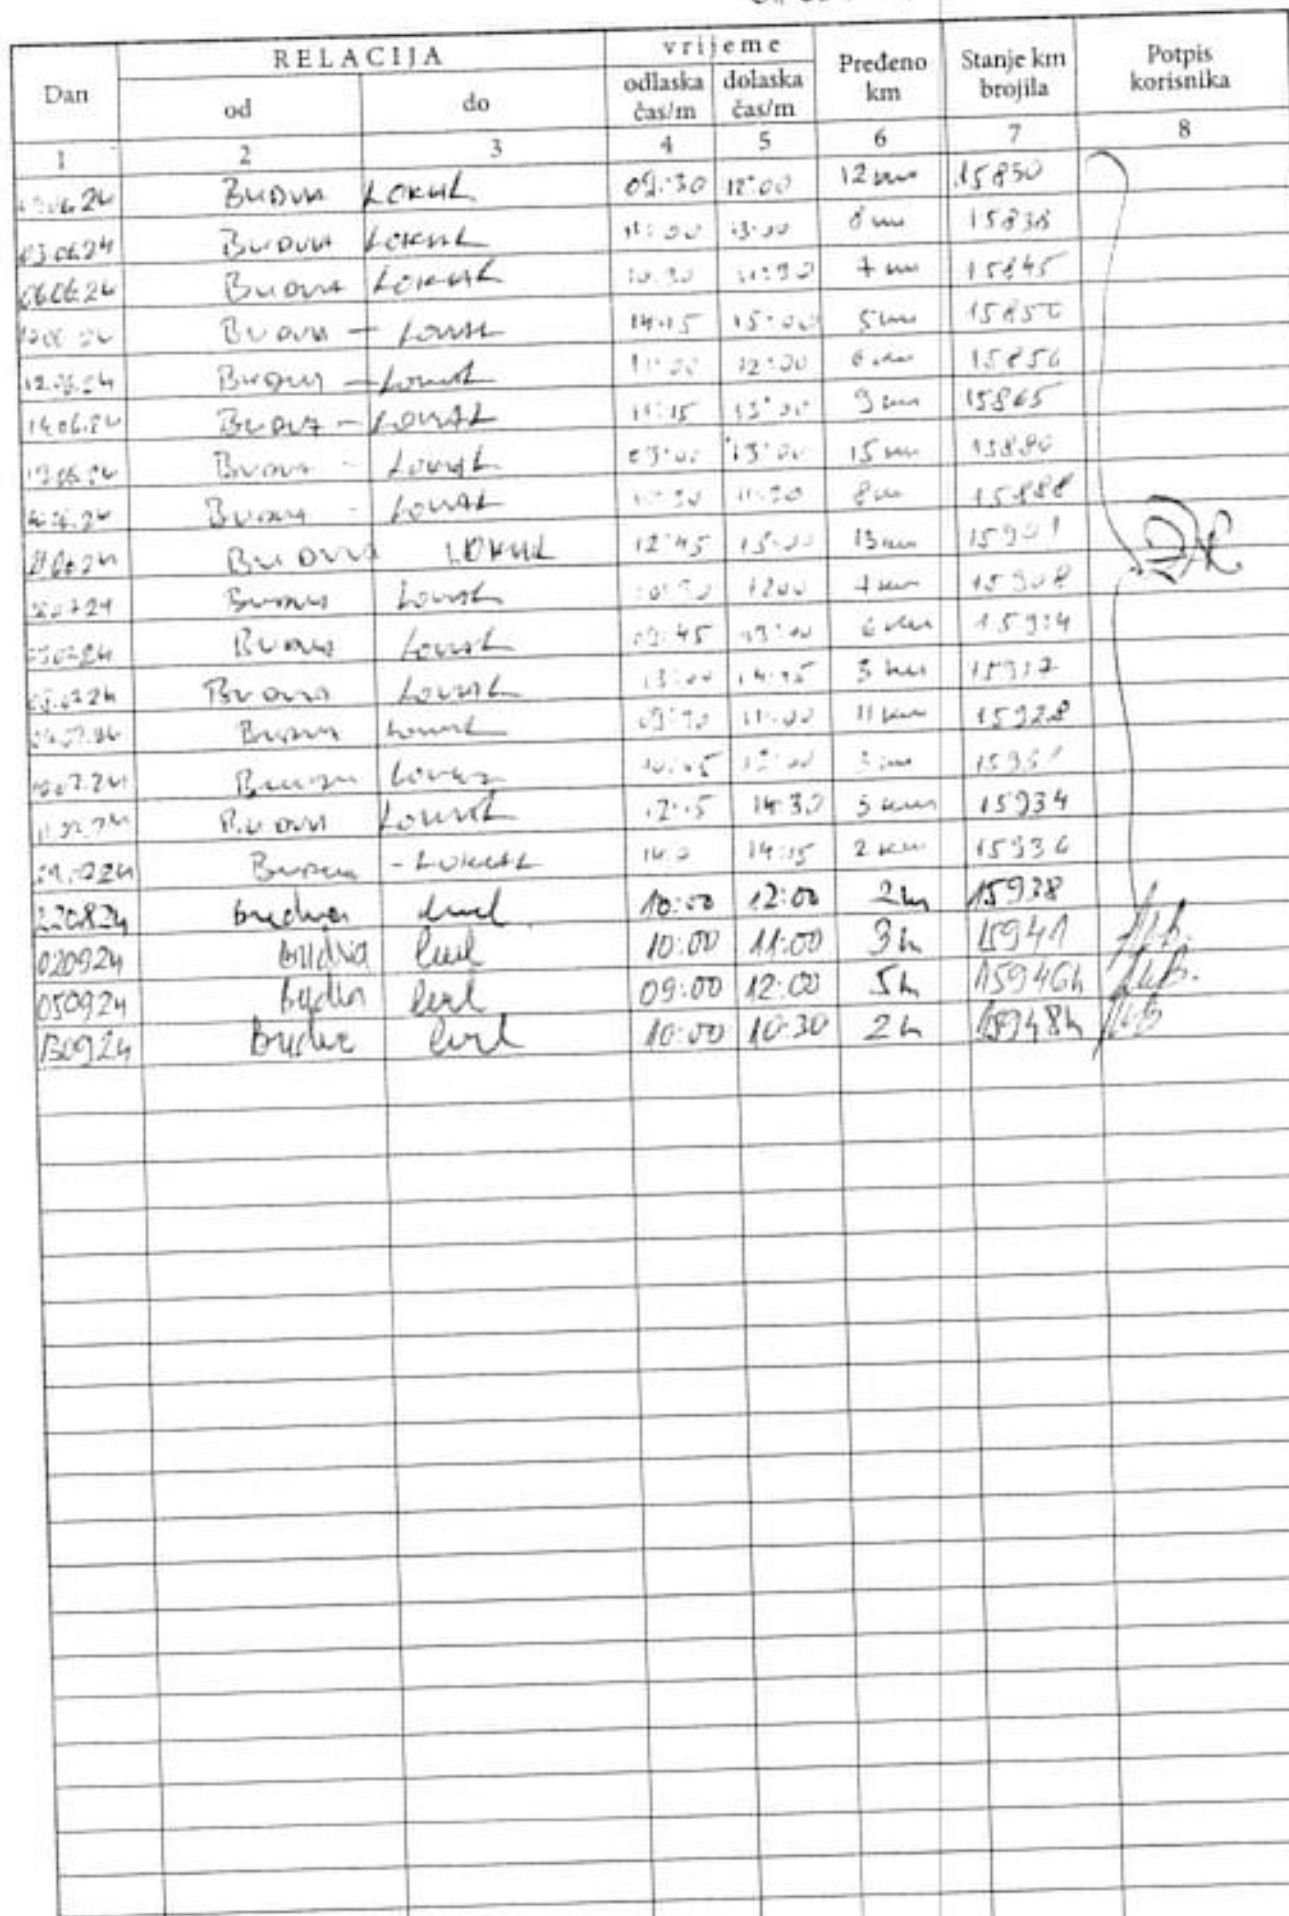 RELACIJA vrijeme
Dan od do odlaska čas/m dolaska čas/m Pređeno km Stanje km brojila Potpis korisnika
1 2 3 4 5 6 7 8
BUDVA LOKAL 09:30 12:00 12 km 15830
03.06.24 BUDVA LOKAL 11:00 13:00 8 km 15838
06.06.24 BUDVA LOKAL 10:30 11:30 7 km 15845
BUDVA - LOKAL 14:15 15:00 5 km 15850
12.06.24 BUDVA - LOKAL 11:00 12:00 6 km 15856
14.06.24 BUDVA - LOKAL 11:15 13:00 9 km 15865
BUDVA - LOKAL 09:00 13:00 15 km 15880
BUDVA - LOKAL 8 km 15888
BUDVA LOKAL 12:45 15:00 13 km 15901
BUDVA LOKAL 10:30 12:00 7 km 15908
BUDVA LOKAL 09:45 6 km 15914
BUDVA LOKAL 13:00 3 km 15917
BUDVA LOKAL 11:00 11 km 15928
BUDVA LOKAL 3 km
BUDVA LOKAL 12:15 14:30 3 km 15934
BUDVA - LOKAL 14:15 2 km 15936
220824 Budva 10:00 12:00 2 15938
020924 Budva 10:00 11:00 3 15941
050924 Budva 09:00 12:00 5 15946
130924 Budva 10:00 10:30 2 15948